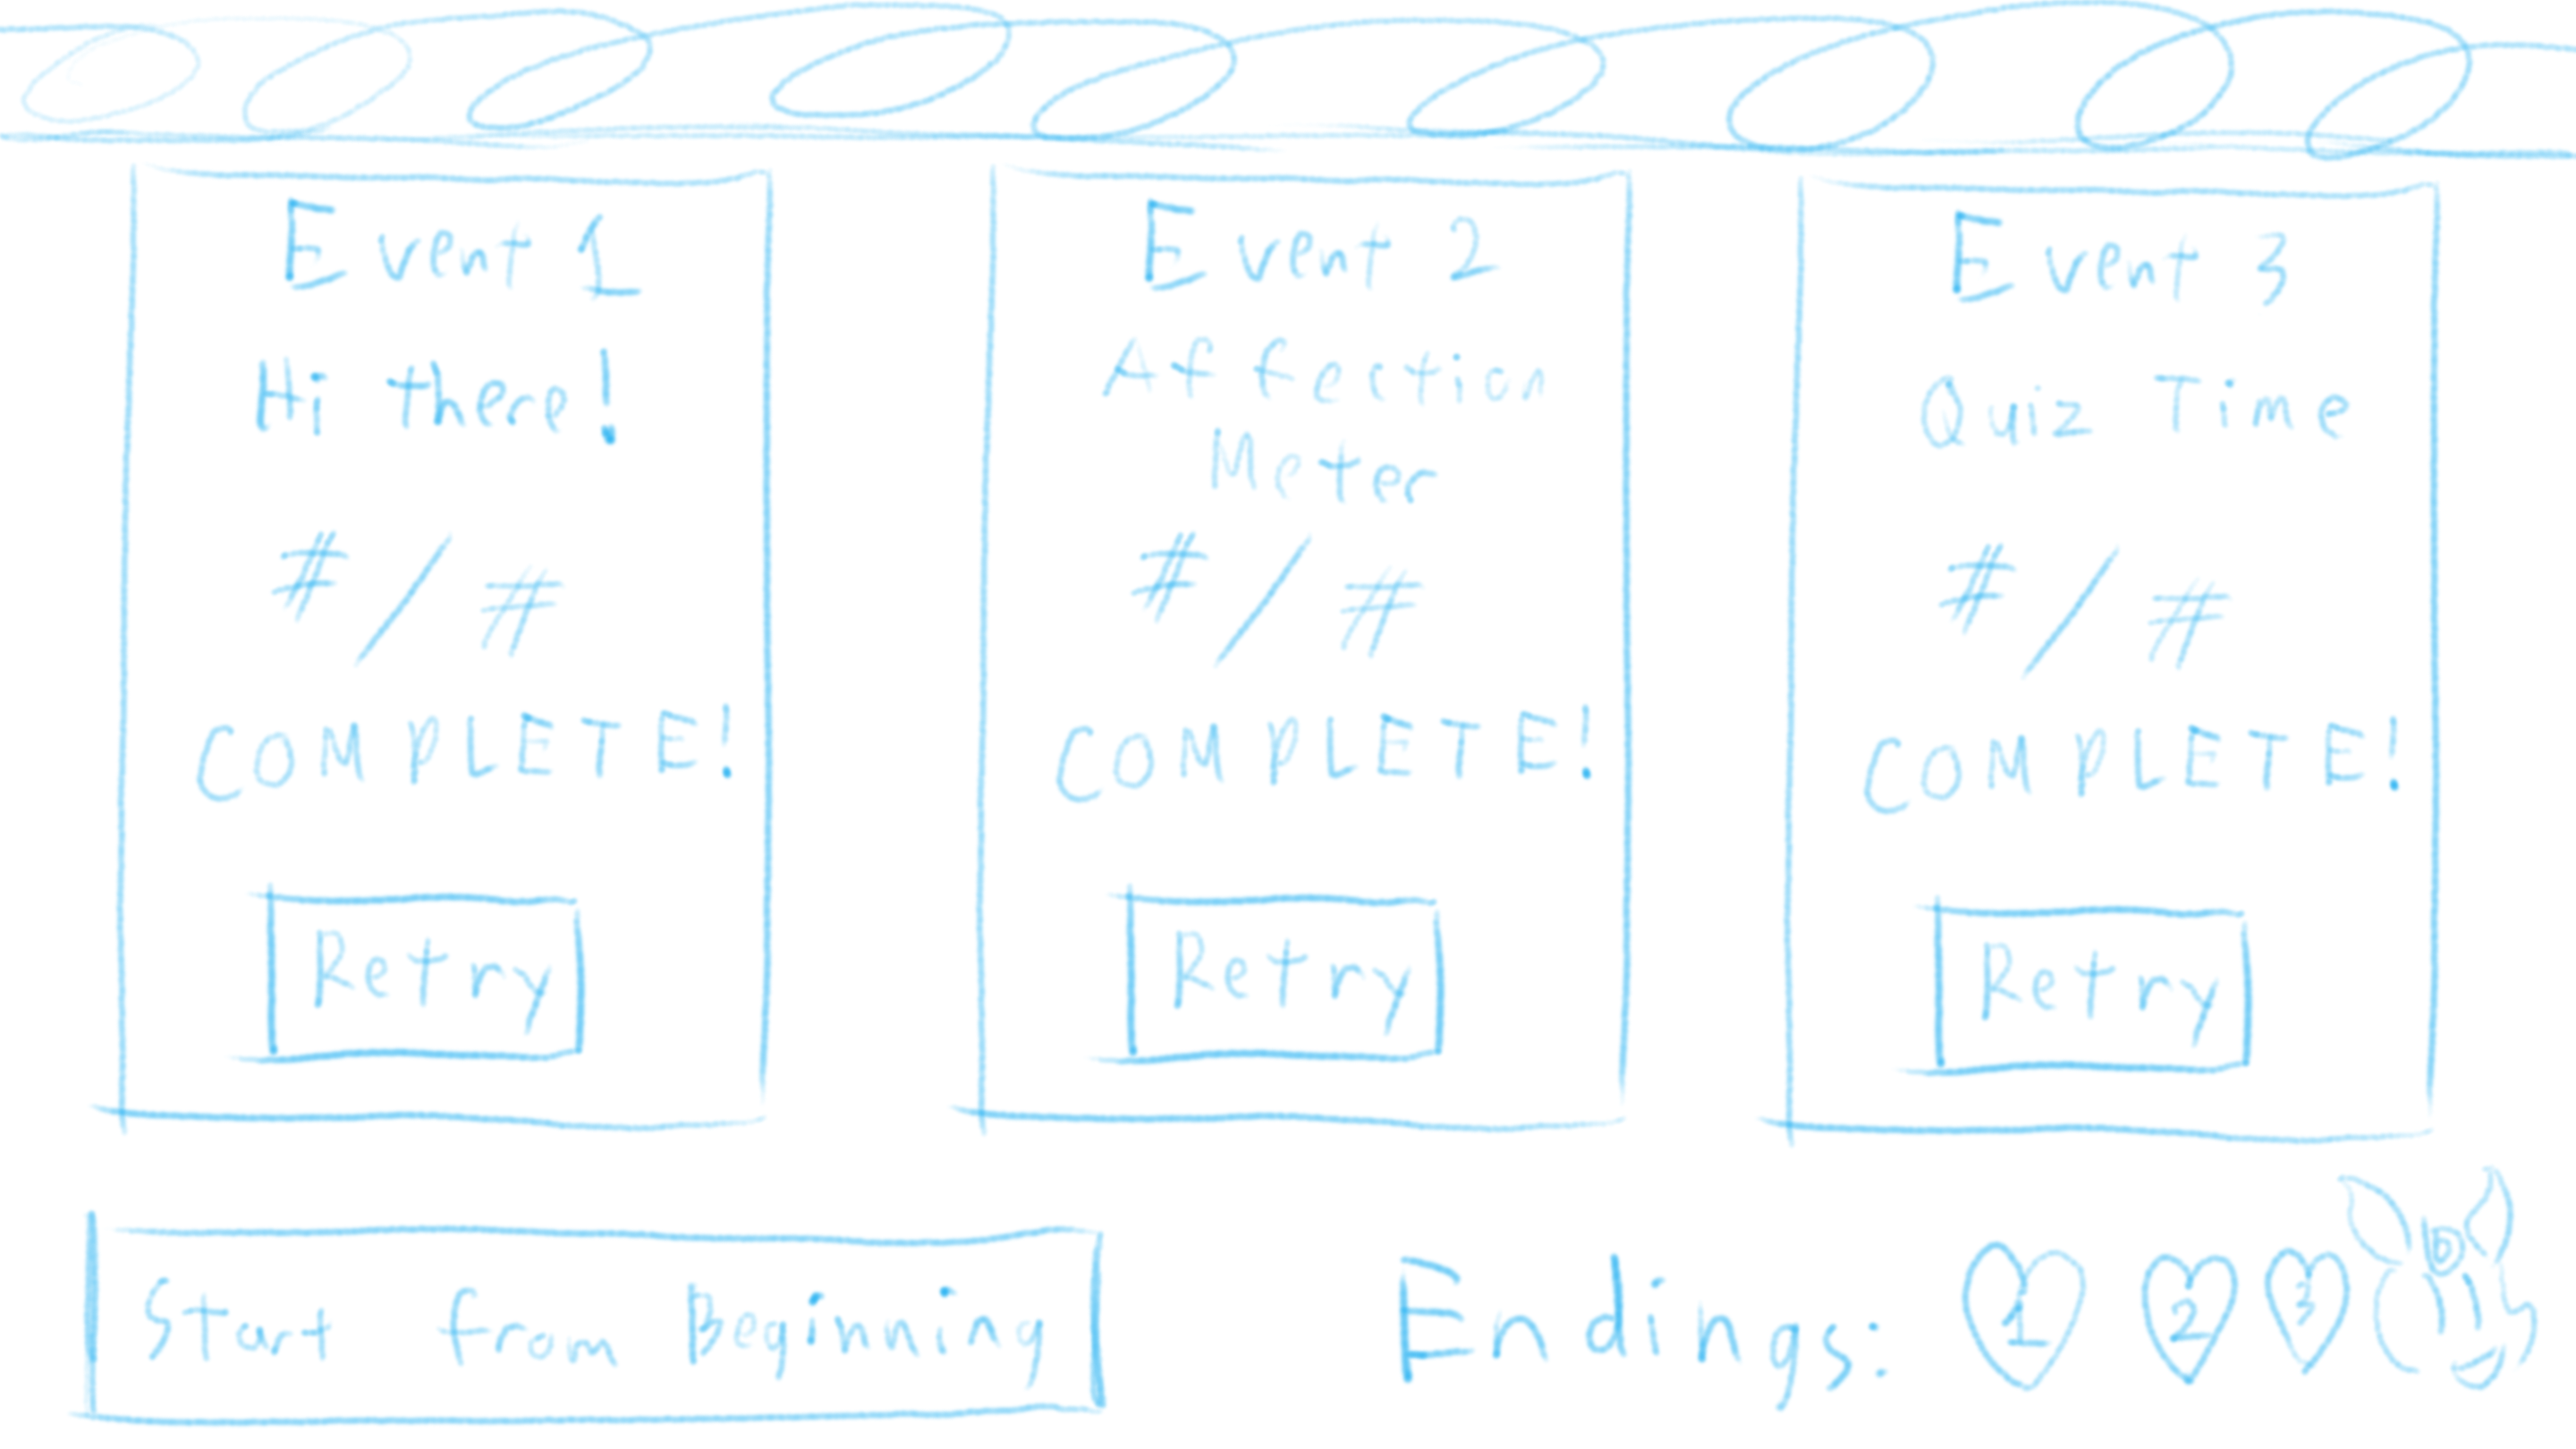 Event 1
Hi there!
#/#
COMPLETE!
Retry
Event 2
Affection
Meter
#/#
COMPLETE!
Retry
Event 3
Quiz Time
#/#
COMPLETE!
Retry
Start from Beginning
Endings: 1 2 3